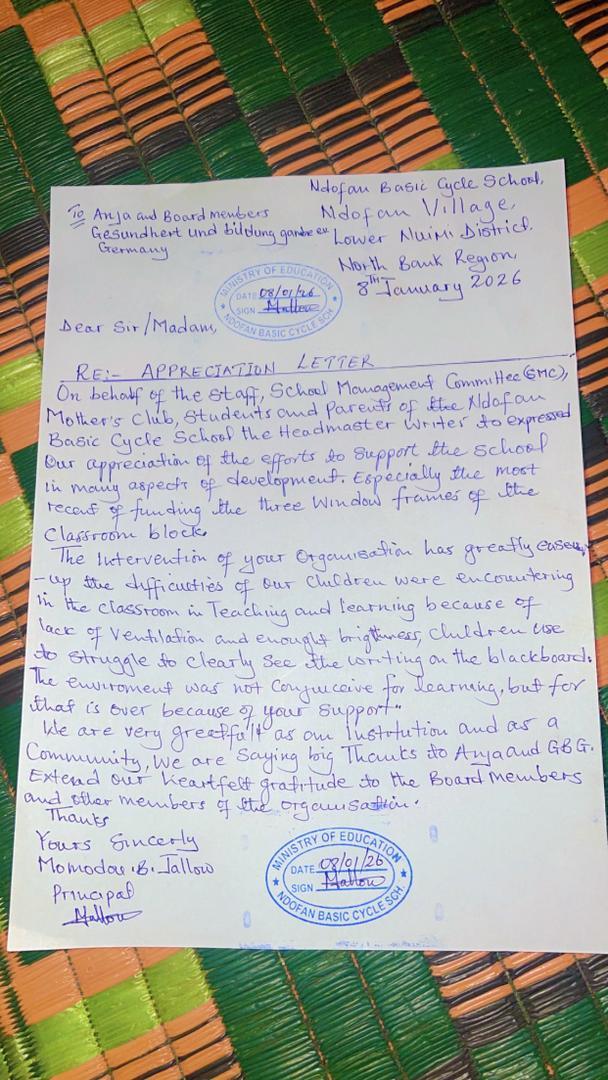 Ndofan Basic Cycle School,
Ndofan Village,
Lower Nuimi District,
North Bank Region,
8TH January 2026
To Anja and Board members
Gesundhert und bildung gambia ev
Germany
MINISTRY OF EDUCATION
DATE 08/01/26
SIGN Mallow
NDOFAN BASIC CYCLE SCH.
Dear Sir/Madam,
RE:- APPRECIATION LETTER
On behalf of the staff, School Management Committee (SMC),
Mother's Club, Students and Parents of the Ndofan
Basic Cycle School the Headmaster writes to expressed
our appreciation of the efforts to support the school
in many aspects of development. Especially the most
recent of funding the three window frames of the
Classroom block.
The Intervention of your Organisation has greatly easey
-up the difficulties of our children were encountering
in the classroom in Teaching and learning because of
lack of Ventilation and enought brigthness, children use
to struggle to clearly see the writing on the blackboard.
The enviroment was not conjuceive for learning, but for
that is over because of your support"
We are very greatfull as an Institution and as a
Community, We are saying big Thanks to Anja and GBG.
Extend our heartfelt gratitude to the Board members
and other members of the organisation.
Thanks
Yours Sincerly
Momodou .B. Jallow
Principal
MINISTRY OF EDUCATION
DATE 08/01/26
SIGN
NDOFAN BASIC CYCLE SCH.